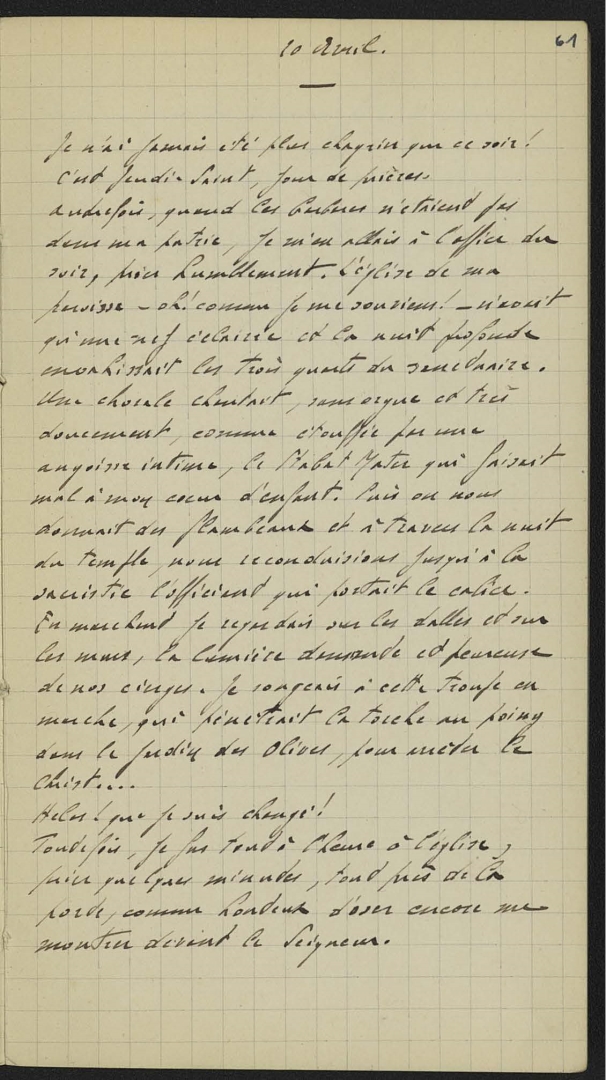 61
10 Avril.
Je n'ai jamais été plus chagrin que ce soir!
C'est Jeudi-Saint, jour de prières.
Autrefois, quand les barbares n'étaient pas
dans ma patrie, je m'en allais à l'office du
soir, prier humblement. L'église de ma
paroisse – oh! comme je me souviens! – n'avait
qu'une nef éclairée et la nuit profonde
envahissait les trois quarts du sanctuaire.
Une chorale chantait, sans orgue et très
doucement, comme étouffée par une
angoisse intime, le Stabat Mater qui faisait
mal à mon coeur d'enfant. Puis on nous
donnait des flambeaux et à travers la nuit
du temple, nous reconduisions jusqu'à la
sacristie l'officiant qui portait le calice.
En marchant je regardais sur les dalles et sur
les murs, la lumière dansante et peureuse
de nos cierges. Je songeais à cette troupe en
marche, qui pénétrait la torche au poing
dans le jardin des Olives, pour arrêter le
Christ....
Hélas! que je suis changé!
Toutefois, je fus tout à l'heure à l'église,
prier quelques minutes, tout près de la
porte, comme honteux d'oser encore me
montrer devant le Seigneur.